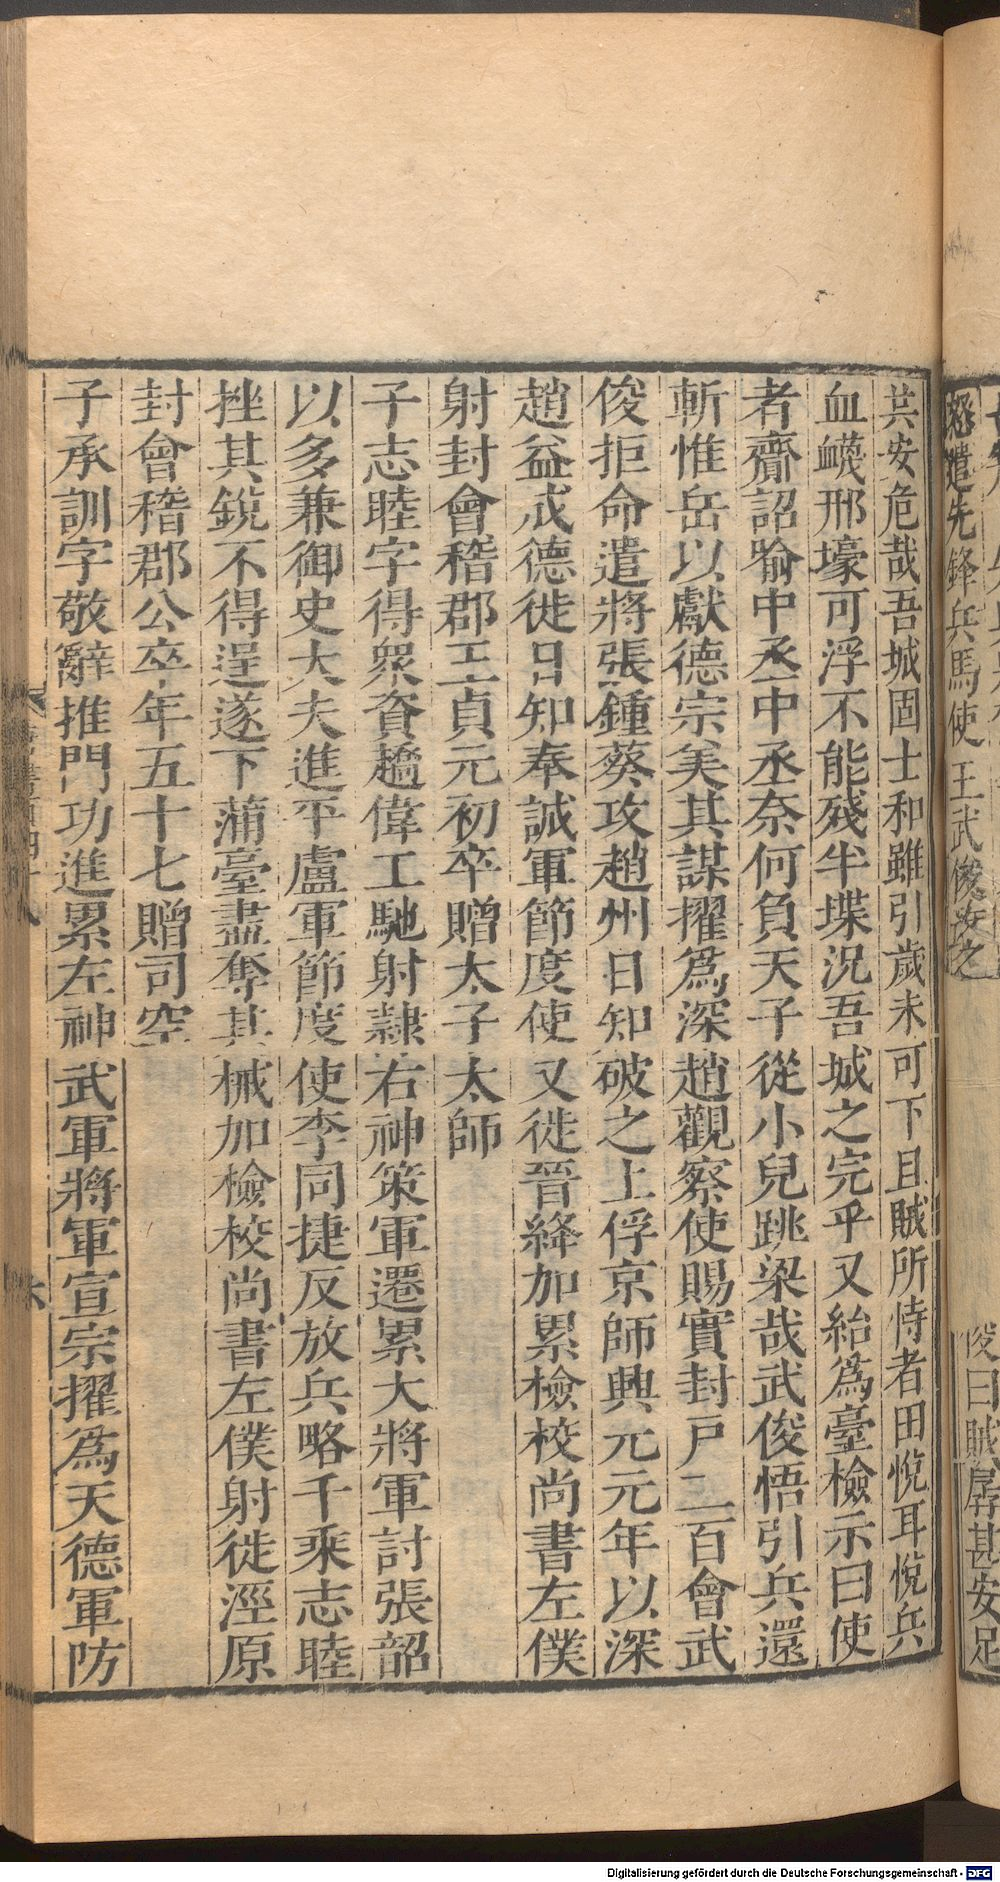 共安危哉吾城固士和雖引歲未可下且賊所恃者田悅耳悅兵
血衊邢壕可浮不能殘半堞況吾城之完乎又紿為臺檢示曰使
者齎詔喻中丞中丞奈何負天子從小兒跳梁哉武俊悟引兵還
斬惟岳以獻德宗美其謀擢為深趙觀察使賜實封戶二百會武
俊拒命遣將張鍾葵攻趙州日知破之上俘京師興元元年以深
趙益成德徙日知奉誠軍節度使又徙晉絳加累檢校尚書左僕
射封會稽郡王貞元初卒贈太子太師
子志睦字得衆資趫偉工馳射隸右神策軍遷累大將軍討張韶
以多兼御史大夫進平盧軍節度使李同捷反放兵略千乘志睦
挫其銳不得逞遂下蒲臺盡奪其械加檢校尚書左僕射徙涇原
封會稽郡公卒年五十七贈司空
子承訓字敬辭推門功進累左神武軍將軍宣宗擢為天德軍防
遣先鋒兵馬使王武俊攻之
俊曰賊孱甚安足
Digitalisierung gefördert durch die Deutsche Forschungsgemeinschaft - DFG